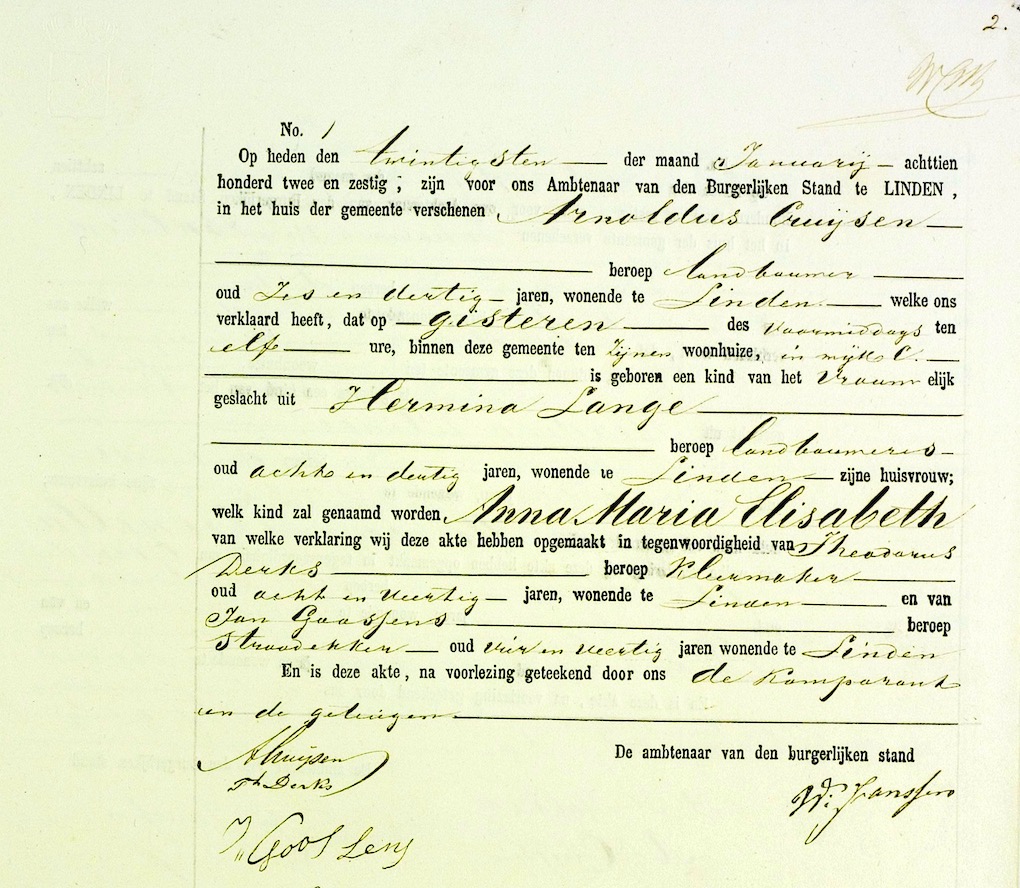 2.
No. 1
Op heden den twintigsten der maand Januarij achttien
honderd twee en zestig, zijn voor ons Ambtenaar van den Burgerlijken Stand te LINDEN,
in het huis der gemeente verschenen Arnoldus Cruijsen
beroep landbouwer
oud Zes en dertig jaren, wonende te Linden welke ons
verklaard heeft, dat op gisteren des voormiddags ten
elf ure, binnen deze gemeente ten Zijnen woonhuize, in wijk C.
is geboren een kind van het Vrouwelijk
geslacht uit Hermina Lange
beroep landbouweres
oud acht en dertig jaren, wonende te Linden zijne huisvrouw;
welk kind zal genaamd worden Anna Maria Elisabeth
van welke verklaring wij deze akte hebben opgemaakt in tegenwoordigheid van Theodorus
Derks beroep Kleermaker
oud acht en Veertig jaren, wonende te Linden en van
Jan Goossens beroep
Stroodekker oud vier en Veertig jaren wonende te Linden
En is deze akte, na voorlezing geteekend door ons de Komparant
en de getuigen
De ambtenaar van den burgerlijken stand
ACruijsen
Th Derks
W. Janssen
J. Goossens